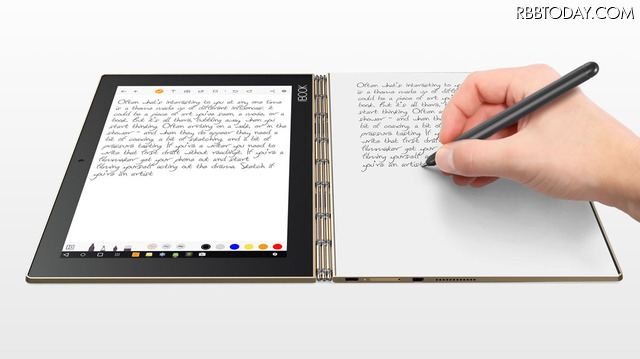 RBBTODAY.COM
Often what's interesting to you at any one time
is a theme made up of different influences. It
could be a piece of art you've seen, a movie, or a
book. But it's all there, bubbling away when you
start thinking. Often arriving on a walk, or in the
shower - and when they do appear they need a
bit of coaxing, a bit of sketching, and a bit of
pressure testing. If you're a writer you need to
write that first draft without reading. If you're a
filmmaker get your phone out and start
filming yourself acting out the drama. Sketch if
you're an artist
BOOK
Often what's interesting to you
is a theme made up of different
could be a piece of art you
book. But it's all there,
start thinking. Often
shower - and when
bit of coaxing, a bit
pressure testing. If
write that first
filmmaker get your
filming yourself
you're an artist